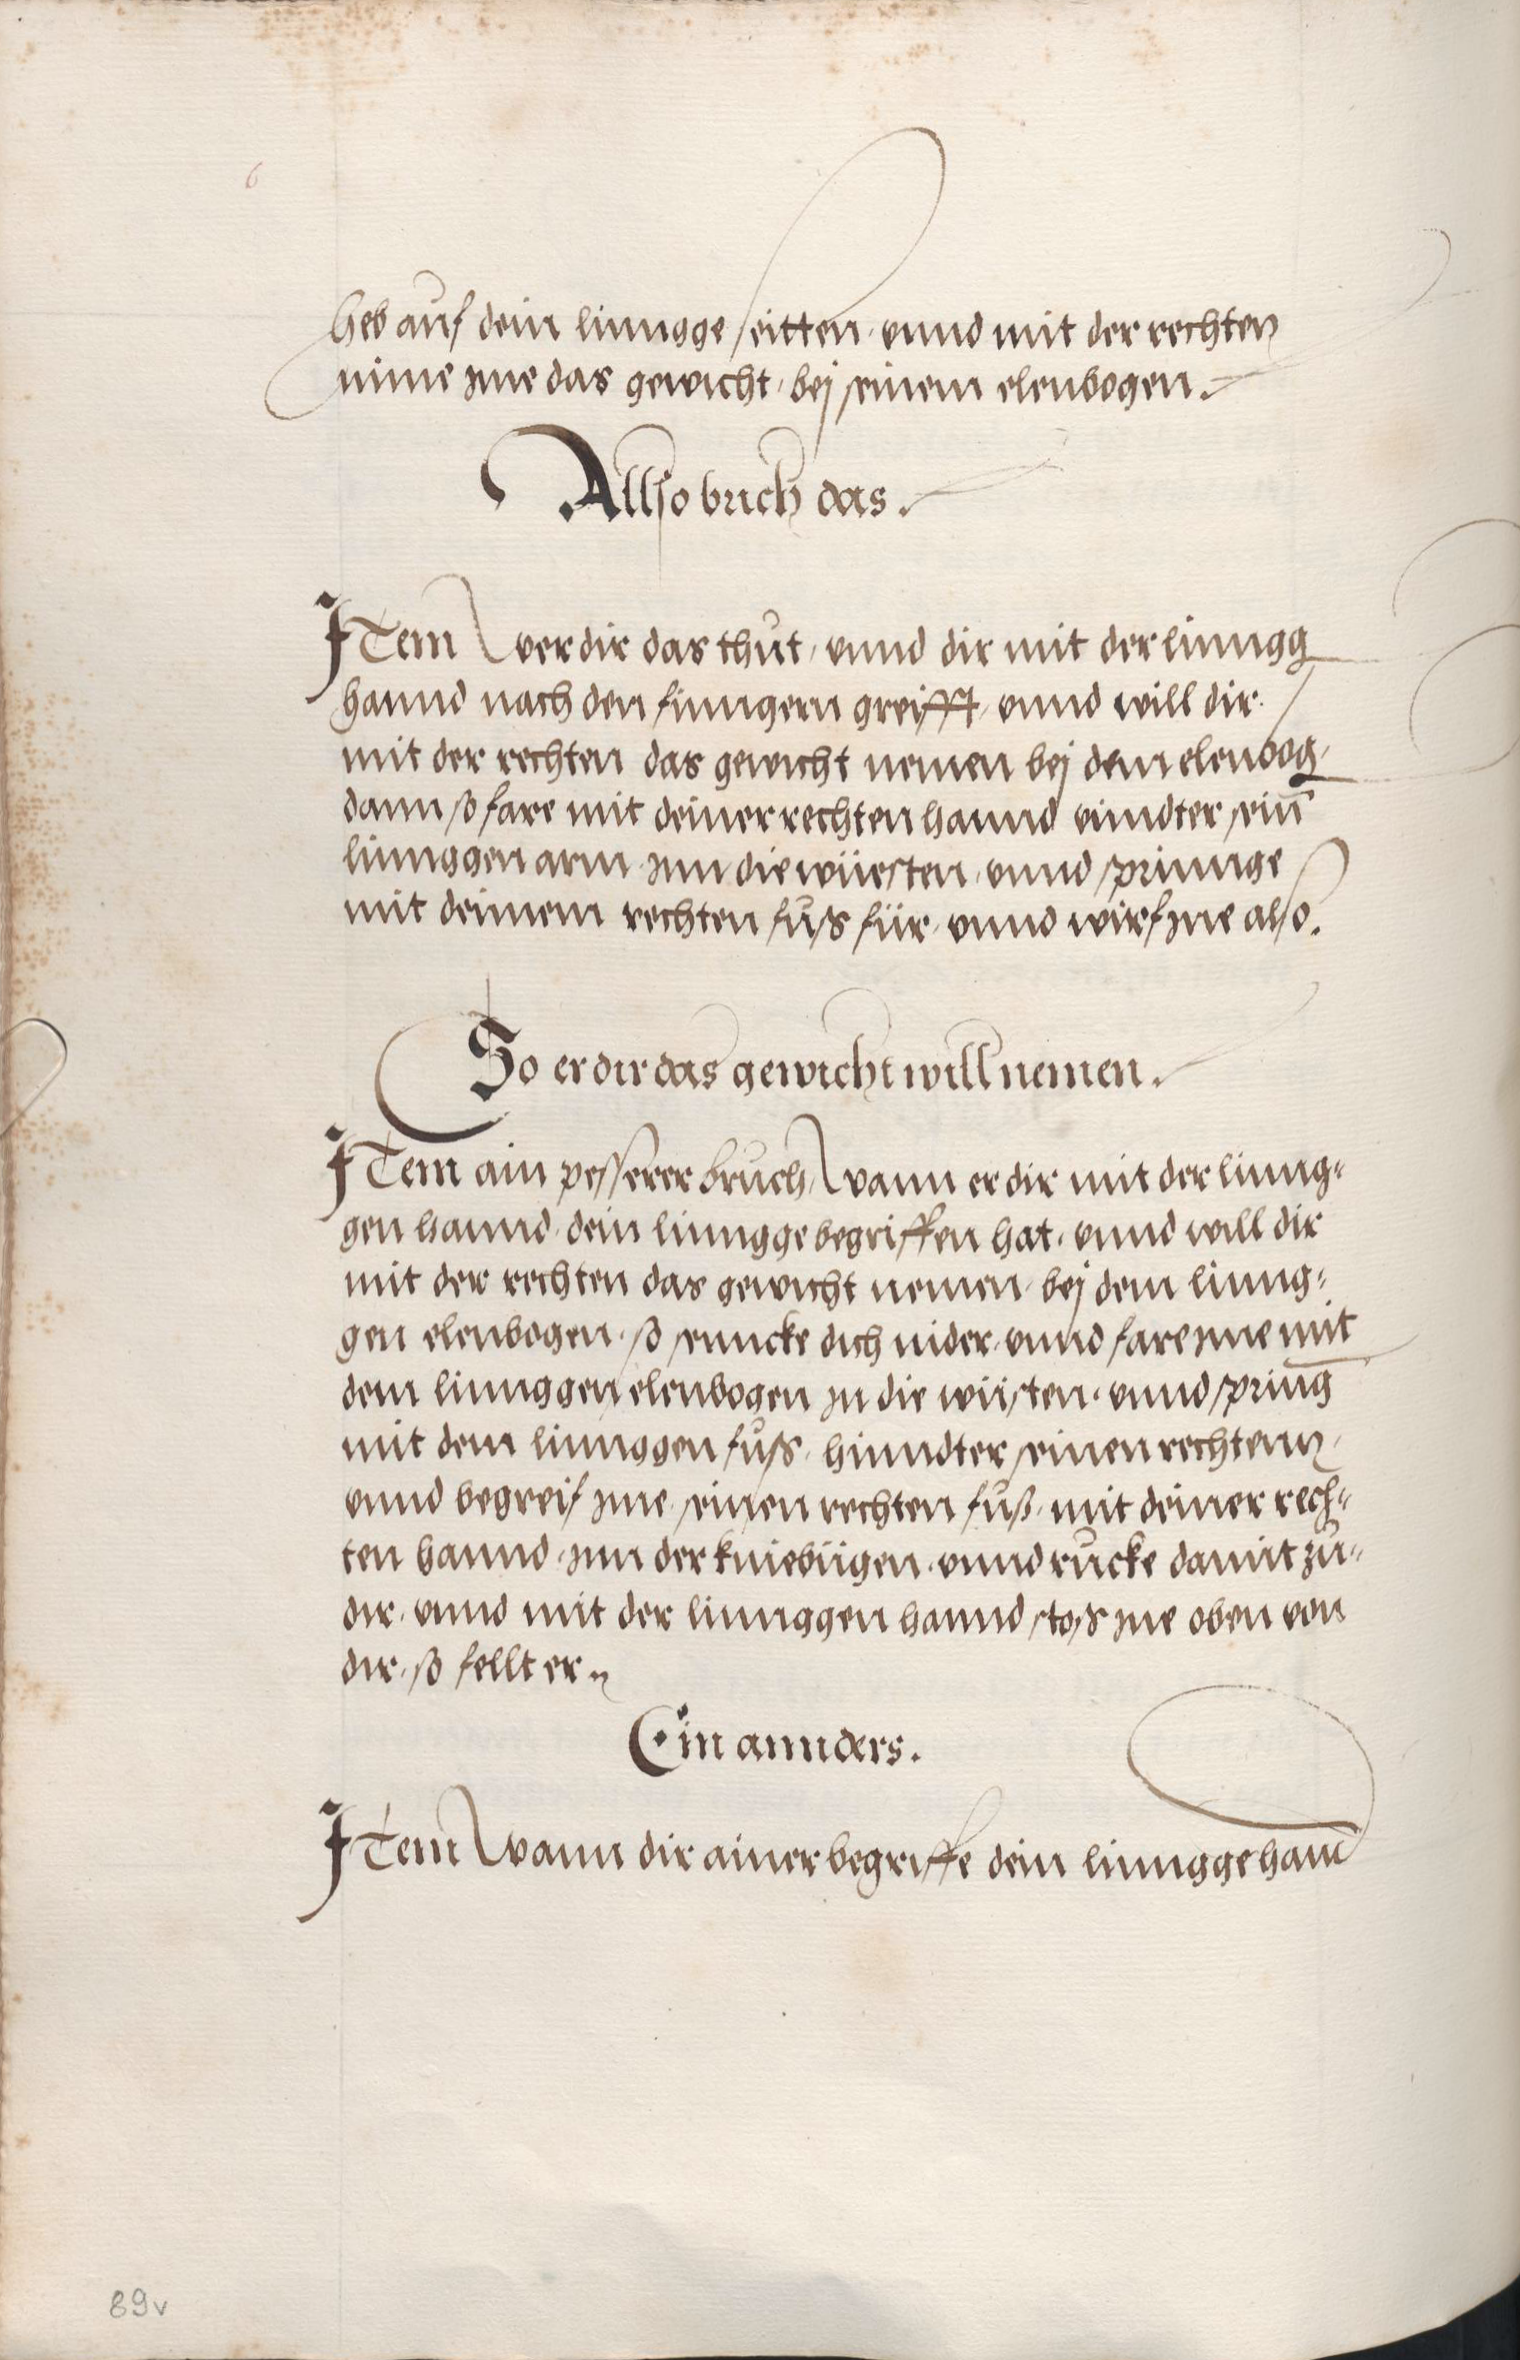 6
heb auf dein linngge seitten, vnnd mit der rechten
nime jme das gewicht, bej seinem elenbogen.
Allso brich das.
JTem wer dir das thůt, vnnd dir mit der linngg
hannd nach den finngern greifft, vnnd will dir
mit der rechten das gewicht nemen bej dem elenbog,
dann so fare mit deiner rechten hannd vinndter sein̄
linnggen arm jnn die wüesten, vnnd sprinnge
mit deinem rechten fůss für, vnnd wirf jne also.
So er dir das gewicht will nemen.
JTem ain pesserer brůch, wann er dir mit der linng-
gen hannd, dein linngge begriffen hat, vnnd will dir
mit der rechten das gewicht nemen, bej dem linng-
gen elenbogen, so sencke dich nider, vnnd fare jme mit
dem linnggen elenbogen jn die wüsten, vnnd spring
mit dem linnggen fůss, hinndter seinen rechtenn,
vnnd begreif jme seinen rechten fůß, mit deiner rech-
ten hannd, jnn der kniebügen, vnnd rucke damit zů-
dir, vnnd mit der linnggen hannd stoss jne oben von
dir, so fellt er.
Ein annders.
JTem wann dir ainer begriffe dein linngge hann̄
89v